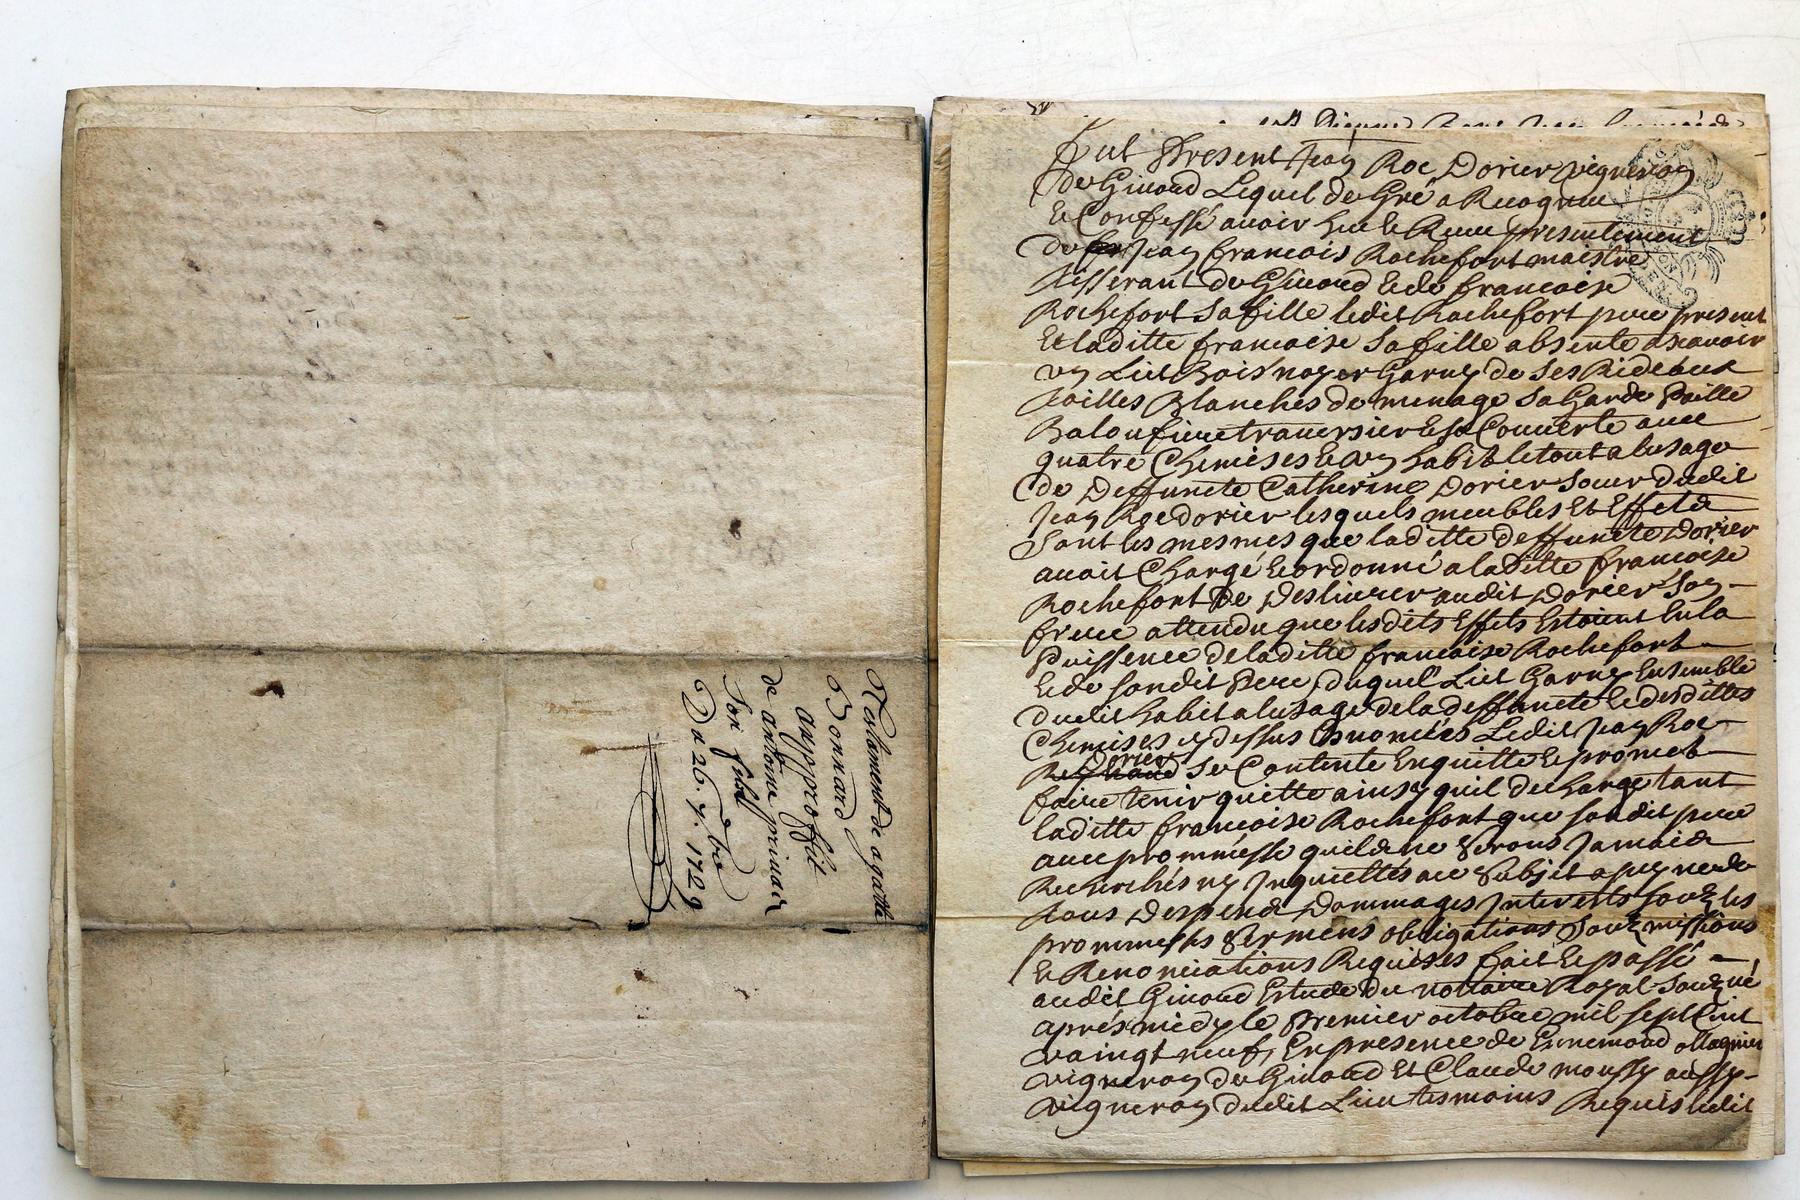 Testament de agathe
Bonnard
approffit
de antoine
son
Du 26. 7. 1729
Fut Present Jean Roc Dorier vigneron
de Givord Lequel de Gré a Recognu
et Confessé avoir heu et Receu presentement
de Jean francois Rochefort maistre
tisserant de Givord et de francoise
Rochefort sa fille ledit Rochefort pere present
Et laditte francoise sa fille absente ascavoir
un Lict Bois noyer Garny de ses Rideaux
toilles Blanches de menage sa Garde Paille
Baloufiere traversier et sa Couverte avec
quatre Chemises et un habit le tout a lusage
de Deffuncte Catherine Dorier soeur dudit
Jean Roc dorier lesquels meubles Et Effets
sont les mesmes que laditte deffuncte Dorier
avoit Chargé et ordonné a laditte francoise
Rochefort de Deslivrer audit Dorier son
frere attendu que lesdits Effets Estoient En la
Puissence de laditte francoise Rochefort
et de sondit Pere, duquel Lict Garny Ensemble
dudit habit a lusage de la deffuncte et desdittes
Chemises cy dessus Ledit Jean Roc
Dorier
se Contente En quitte et promet
faire tenir quitte ainsy quil decharge tant
laditte francoise Rochefort que sondit pere
avec prommesse quils ne seront Jamais
Recherchés ny Inquiettés a ce subjet a peyne de
tous Despens Dommages Interests sous les
prommesses sermens obligations soubmissions
et Renonciations Requises fait et passé
audit Givord Estude du nottaire Royal soubzné
aprés midy le Premier octobre mil sept Cent
vaingt neuf, En presence de Ennemond
vigneron de Givord Et Claude moussy aussy
vigneron dudit Lieu tesmoins Requis ledit